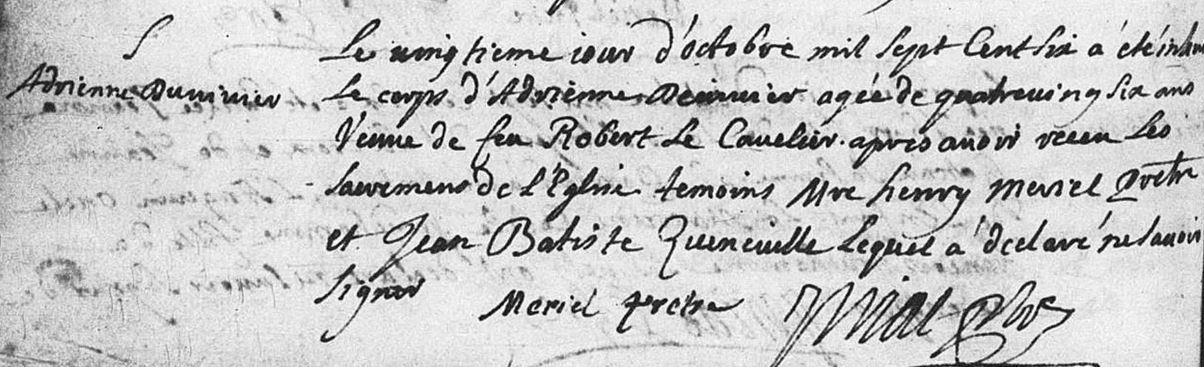 S
Adrienne Duvivier
Le vingtieme jour d'octobre mil sept Cent six a été inhumé
Le corps d'Adrienne Duvivier agée de quatrevingsix ans
Veuve de feu Robert Le Cavelier apres avoir receu Les
sacremens de L'Eglise temoins Mre henry Meriel Pretre
et Jean Batiste Quenneville Lequel à declaré ne savoir
signer
Meriel Pretre